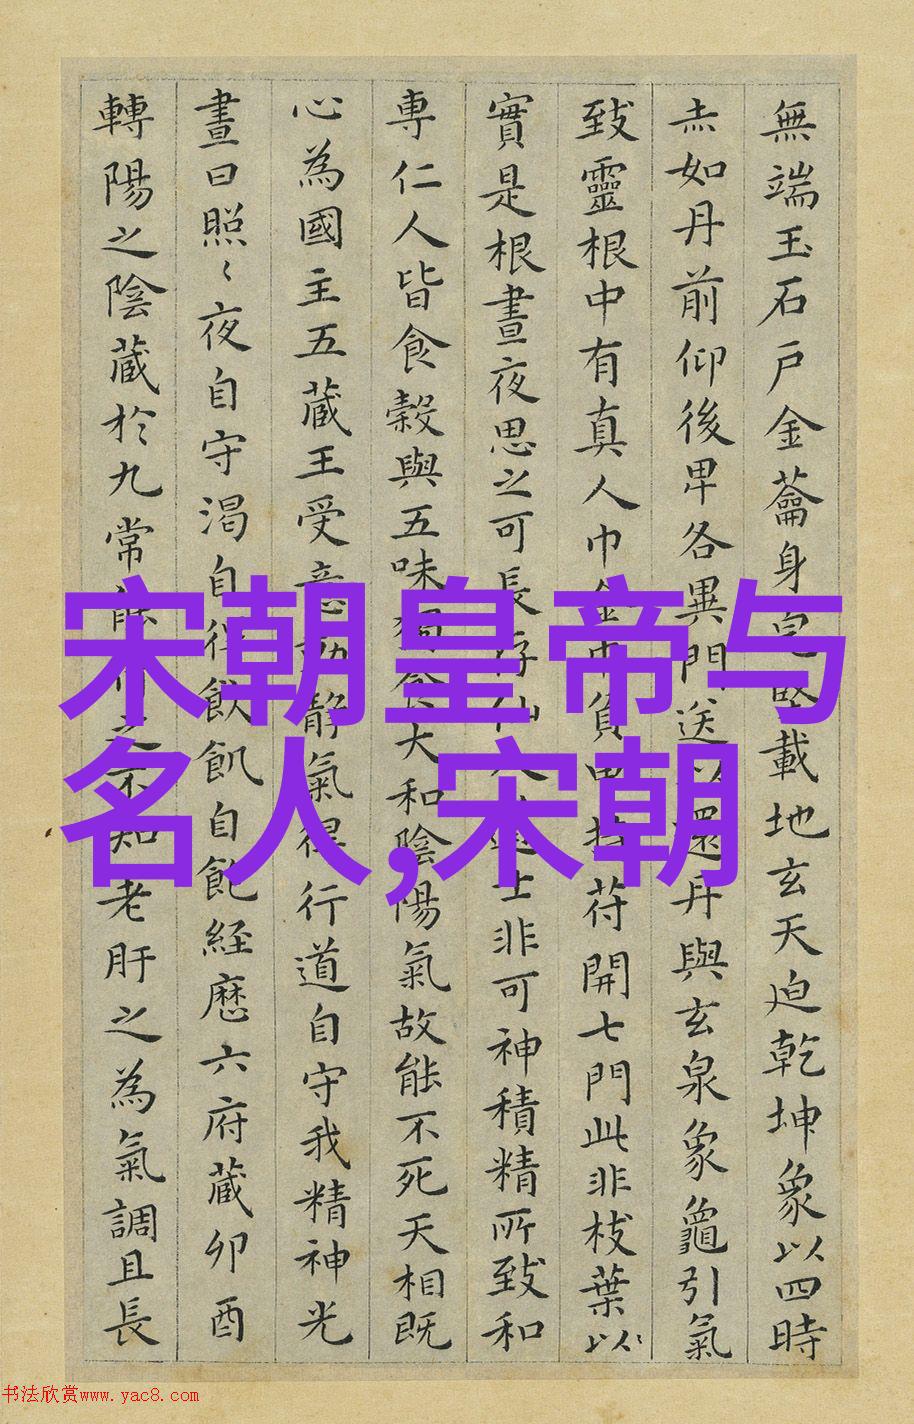 無端玉石戶金蘥身完堅載地玄天迫乾坤象以四時
赤如丹前仰後卑各異門送以還丹與玄泉象龜引氣
致靈根中有真人巾金巾負甲持符開七門此非枝葉以
實是根晝夜思之可長存仙人道士非可神積精所致和
專仁人皆食穀與五味獨食大和陰陽氣故能不死天相既
心為國主五藏王受意動靜氣得行道自守我精神光
晝日照〻夜自守渴自得飲飢自飽経歷六府藏卯酉
轉陽之陰藏於九常能行之不知老肝之為氣調且長
宋朝皇帝与
名人,宋朝
书法欣赏www.yac8.com